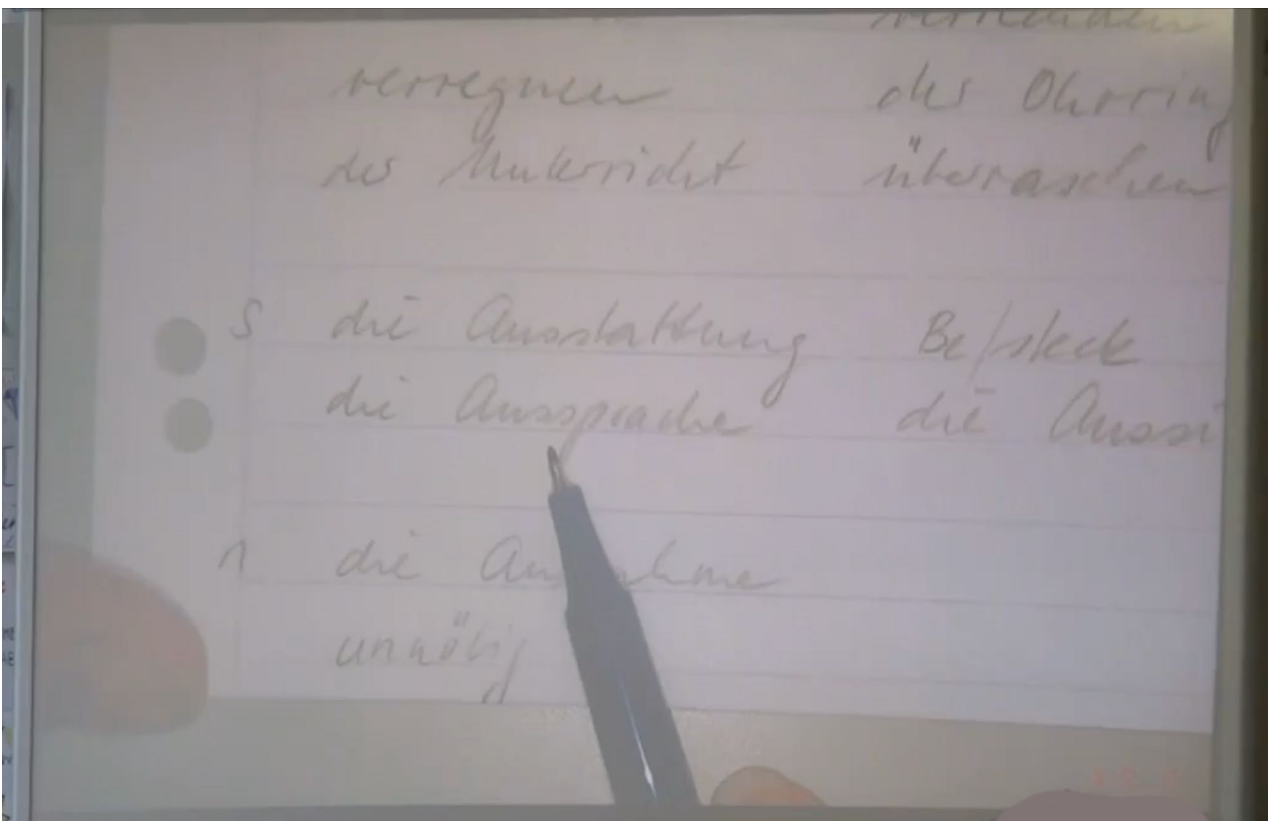 verregnen der Ohrring
der Unterricht überraschen
s die Ausstattung Be/steck
die Aussprache die Aussi
n die Annahme
unnötig